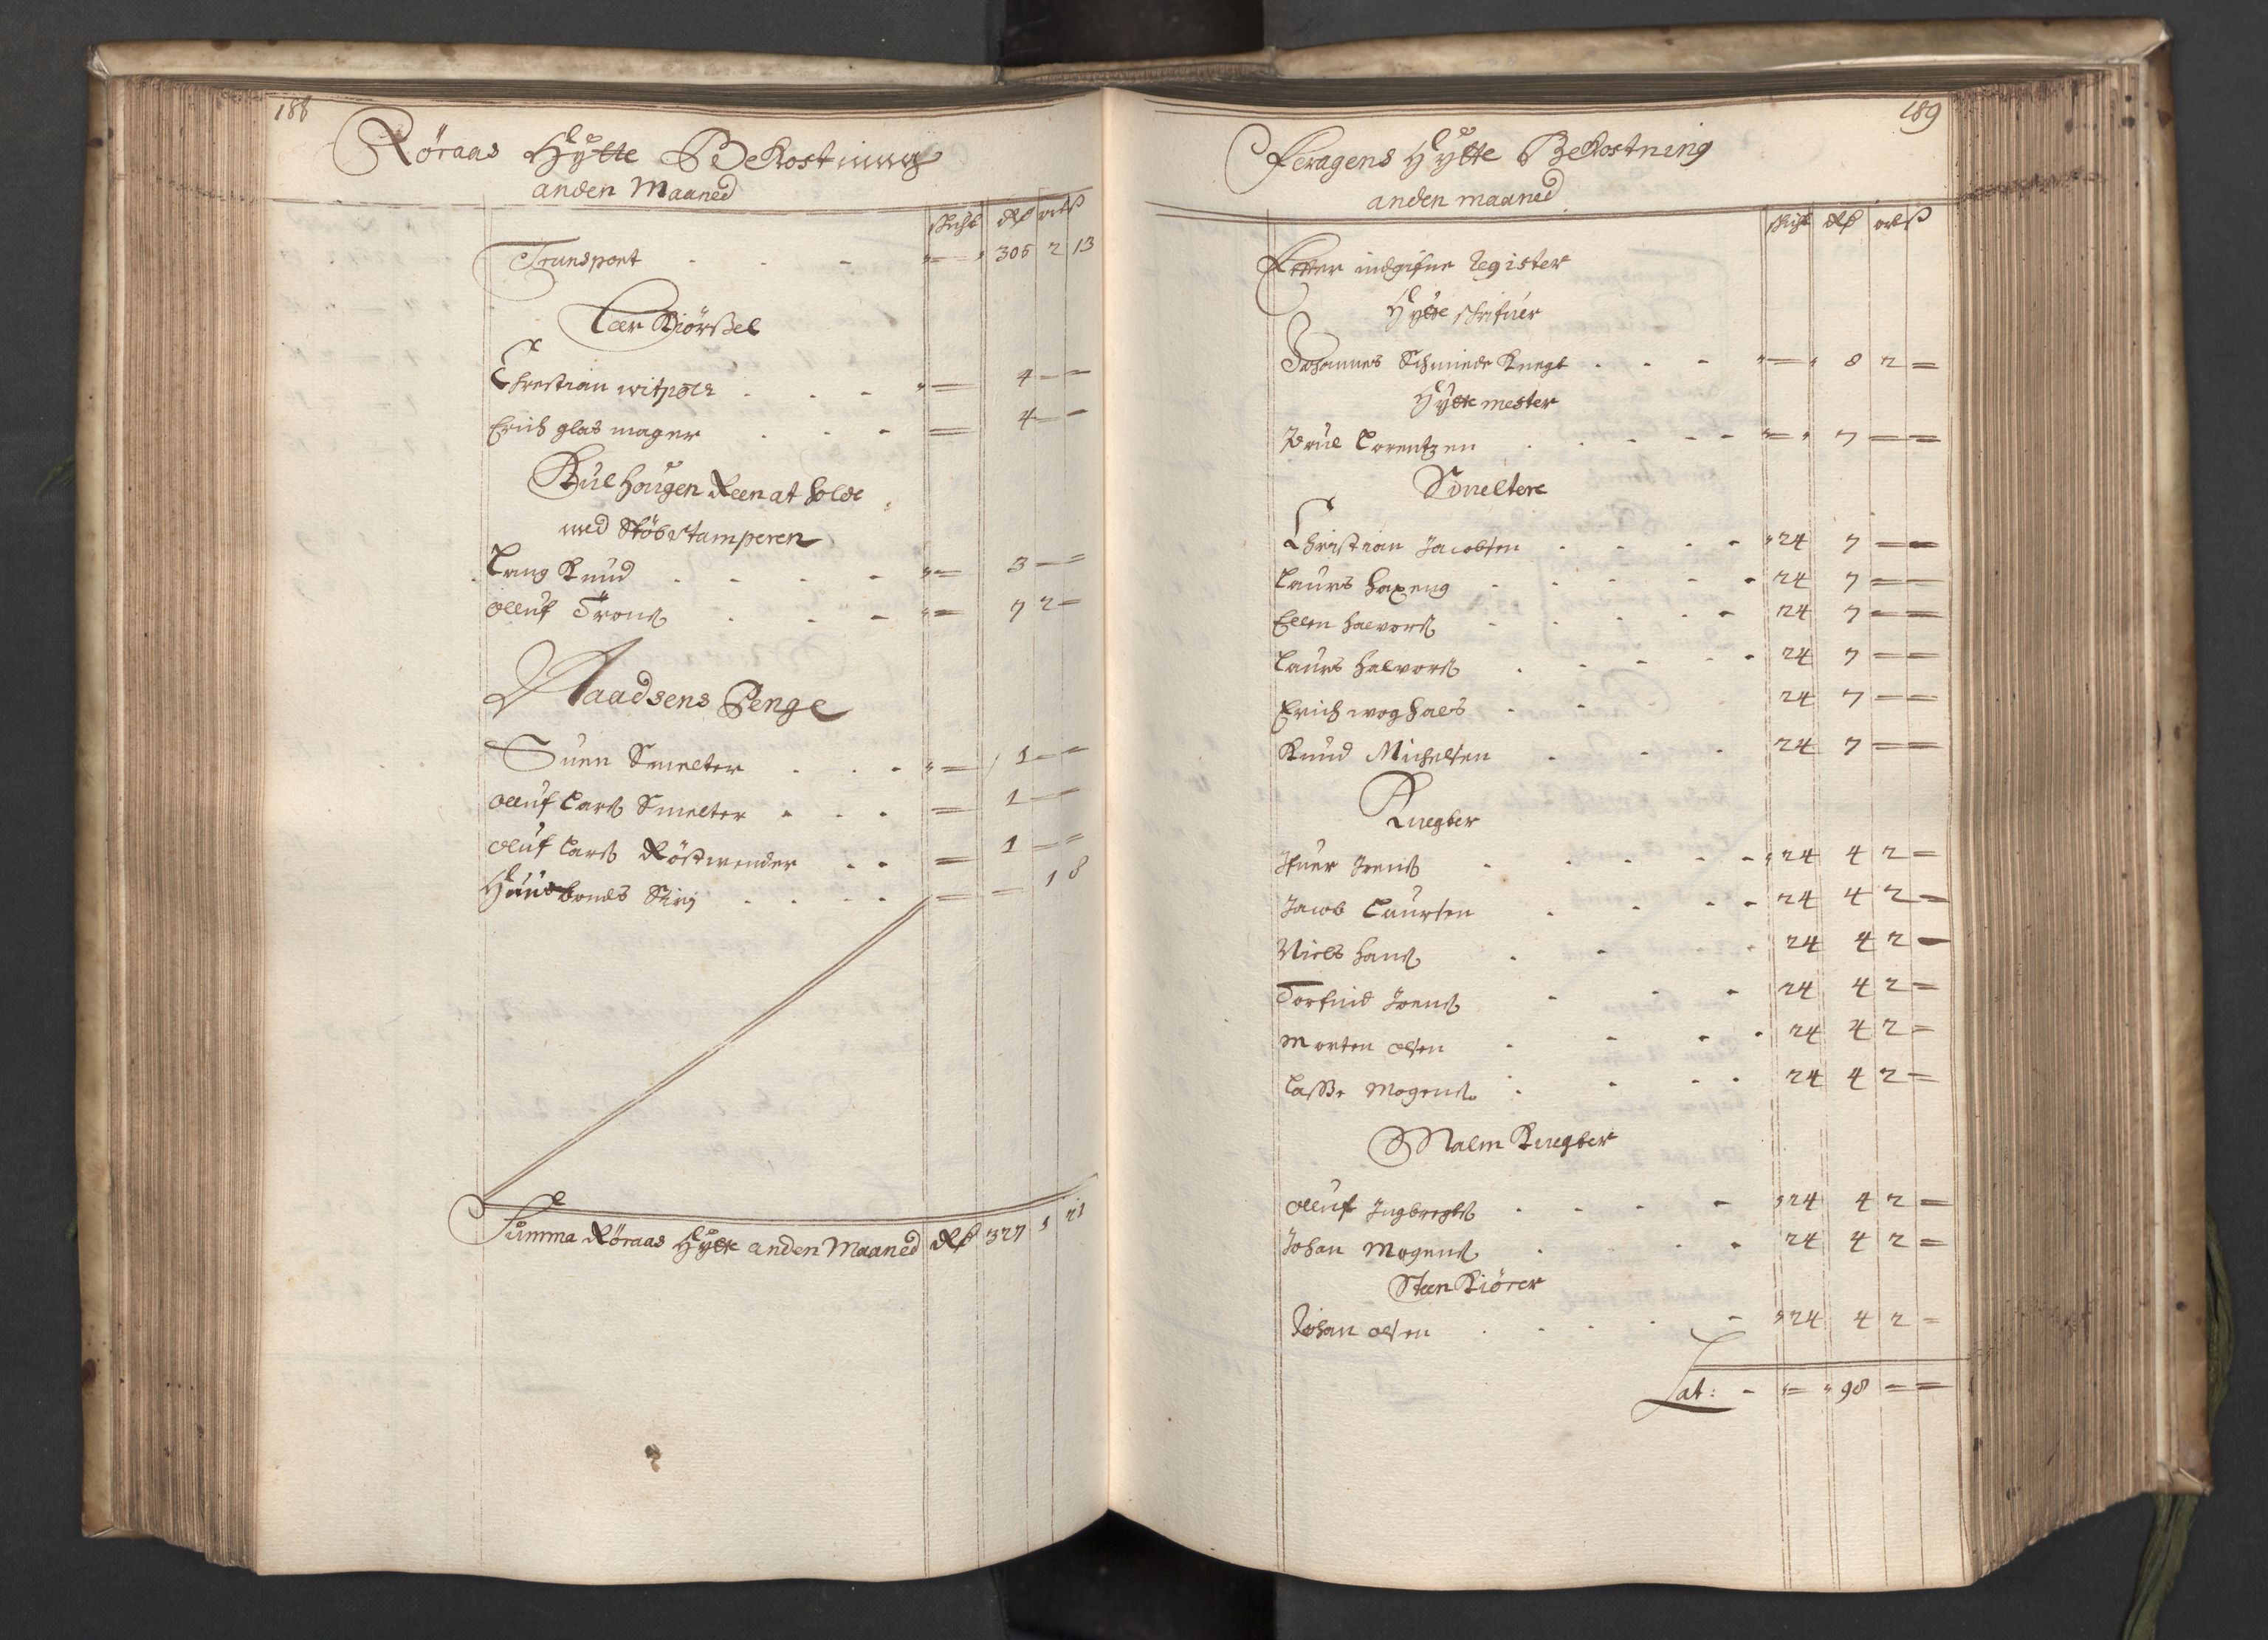 188
Röraas Hytte BeKostning
anden Maaned
skicht Rdr ort ß
Transport - - - 306 2 13
Leer Kiörßel
Chrestian witpoth . . - 4 - -
Erich glas mager . . - 4 - -
Kulhougen Reen at holde
med Stöbstamperen
Lang Knud . - - - 3 - -
Olluf Trons . - - 7 2 -
Naadsens Penge
Suen Smelter . . - 1 - -
Olluf Lars Smelter - . . 1 - -
Oluf Lars Röstvender . . 1 - -
Hunsbonds Siri . . . - - 1 8
Summa Röraas Hytte anden Maaned Rdr 327 1 21
189
Feragens Hytte BeKostning
anden maaned
skicht Rdr ort ß
Efter indgifne Register
Hytte skrifuer
Johannes Schmide Knegt . . - 8 2 -
Hytte mester
Poul Lorentzen . . - - 7 - -
Smeltere
Christian Jacobsen . . - - 24 7 - -
Laurs Haxeng . . - - 24 7 - -
Ellen Halvors . . . - 24 7 - -
Laurs Halvors . . - - 24 7 - -
Erich woghals . . 24 7 - -
Knud Michelsen . . . 24 7 - -
Knegter
Ifuer Jens . . . - - 24 4 2 -
Jacob Laursen . . - - 24 4 2 -
Niels Hans . . - . 24 4 2 -
Torfind Jens . . - 24 4 2 -
Morten olsen . . - - 24 4 2 -
Laße Mogens . . - - 24 4 2 -
Malm Knegter
Olluf Ingbregts . . - - 24 4 2 -
Johan Mogens . . . - 24 4 2 -
Steen Kiörer
Johan olsen . . . - 24 4 2 -
Lat: - - 98 - -